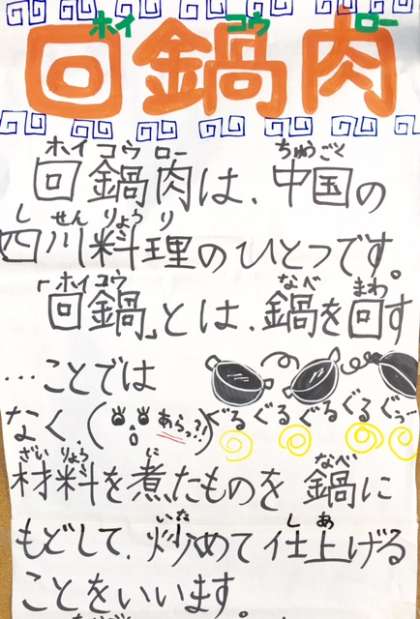 ホイ コウ ロー
回鍋肉
ホイ コウ ロー ちゅうごく
回鍋肉は、中国の
し せん りょう り
四川料理のひとつです。
ホイ コウ なべ まわ
「回鍋」とは、鍋を回す
…ことでは
なく(あらっ?!)ぐるぐるぐるぐるぐっ
ざい りょう に なべ
材料を煮たものを鍋に
いた し あ
もどして、炒めて仕上げる
ことをいいます。